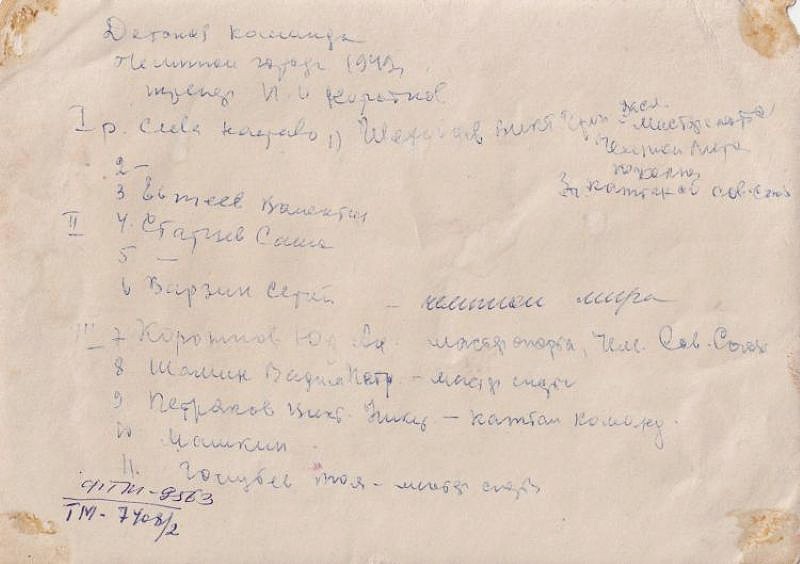 Детская команда
Чемпион города 1949
тренер И. И Коротков
I р. слева направо, 1)
засл.
Мастер спорта
Чемпион мира
по хоккею
2 –
3 Евтеев Валентин
II 4. Статуев Саша
5 –
6 Варзин Сергей – чемпион мира
III 7 Коротков Юр – мастер спорта, Чем. Сов. Союза
8 Шалин Вадим Петр. – мастер спорта
9 Петраков Викт. – капитан команд.
10 Машкин
11. Голубев Толя – мастер спорта
ФТМ-9563
ТМ-7408/2